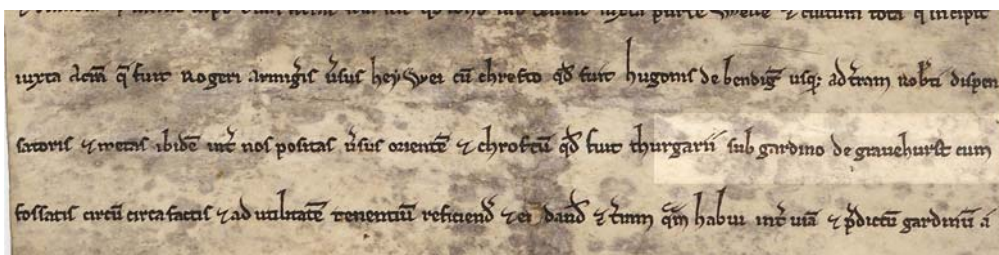 iuxta acm̄ q̄ fuit rogeri armigˀis ūsus heyWei cū chrofto qđ fuit hugonis de bendigˀ usq; ad tˀram robˀti dispen
satoris ⁊ metas ibidē intˀ nos positas ūsus orientē ⁊ chroftū qđ fuit thurgarii sub gardino de grauehurst cum
fossatis circū circa factis ⁊ ad utilitatē tenentiū reficiend̄ ⁊ ei dand̄ ⁊ tˀram q̄m habui intˀ uiā ⁊ p̄dictū gardinū a